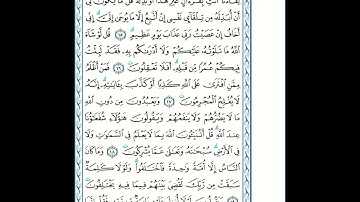 لِقَآءَنَا ٱئْتِ بِقُرْءَانٍ غَيْرِ هَٰذَآ أَوْ بَدِّلْهُ قُلْ مَا يَكُونُ لِىٓ
أَنْ أُبَدِّلَهُۥ مِن تِلْقَآئِ نَفْسِىٓ إِنْ أَتَّبِعُ إِلَّا مَا يُوحَىٰٓ إِلَىَّ إِنِّىٓ
أَخَافُ إِنْ عَصَيْتُ رَبِّى عَذَابَ يَوْمٍ عَظِيمٍ ۝١٥ قُل لَّوْ شَآءَ
ٱللَّهُ مَا تَلَوْتُهُۥ عَلَيْكُمْ وَلَآ أَدْرَىٰكُم بِهِۦ فَقَدْ لَبِثْتُ
فِيكُمْ عُمُرًا مِّن قَبْلِهِۦٓ أَفَلَا تَعْقِلُونَ ۝١٦ فَمَنْ أَظْلَمُ
مِمَّنِ ٱفْتَرَىٰ عَلَى ٱللَّهِ كَذِبًا أَوْ كَذَّبَ بِـَٔايَٰتِهِۦٓ إِنَّهُۥ
لَا يُفْلِحُ ٱلْمُجْرِمُونَ ۝١٧ وَيَعْبُدُونَ مِن دُونِ ٱللَّهِ
مَا لَا يَضُرُّهُمْ وَلَا يَنفَعُهُمْ وَيَقُولُونَ هَٰٓؤُلَآءِ شُفَعَٰٓؤُنَا
عِندَ ٱللَّهِ قُلْ أَتُنَبِّـُٔونَ ٱللَّهَ بِمَا لَا يَعْلَمُ فِى ٱلسَّمَٰوَٰتِ وَلَا
فِى ٱلْأَرْضِ سُبْحَٰنَهُۥ وَتَعَٰلَىٰ عَمَّا يُشْرِكُونَ ۝١٨ وَمَا كَانَ
ٱلنَّاسُ إِلَّآ أُمَّةً وَٰحِدَةً فَٱخْتَلَفُوا۟ وَلَوْلَا كَلِمَةٌ
سَبَقَتْ مِن رَّبِّكَ لَقُضِىَ بَيْنَهُمْ فِيمَا فِيهِ يَخْتَلِفُونَ